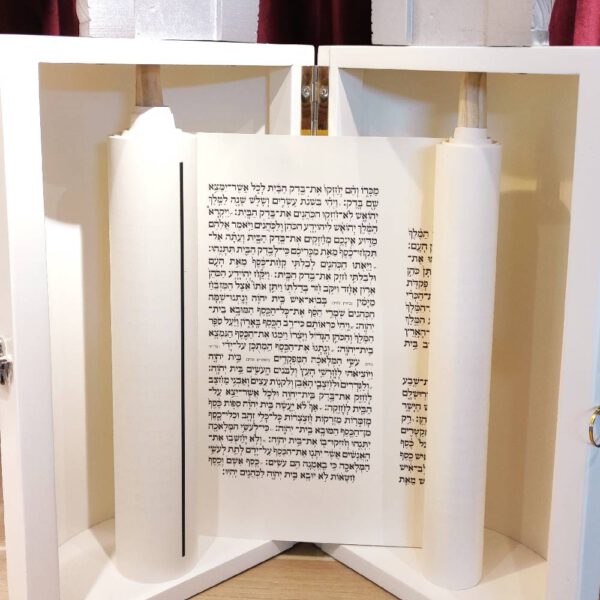 הַמֶּלֶךְ
הָעָם:
מַכָּרוֹ וְהֵם יְחַזְּקוּ אֶת־בֶּדֶק הַבַּיִת לְכֹל אֲשֶׁר־יִמָּצֵא
שָׁם בָּדֶק: וַיְהִי בִּשְׁנַת עֶשְׂרִים וְשָׁלֹשׁ שָׁנָה לַמֶּלֶךְ
יְהוֹאָשׁ לֹא־חִזְּקוּ הַכֹּהֲנִים אֶת־בֶּדֶק הַבָּיִת: וַיִּקְרָא
הַמֶּלֶךְ יְהוֹאָשׁ לִיהוֹיָדָע הַכֹּהֵן וְלַכֹּהֲנִים וַיֹּאמֶר אֲלֵהֶם
מַדּוּעַ אֵינְכֶם מְחַזְּקִים אֶת־בֶּדֶק הַבָּיִת וְעַתָּה אַל־
תִּקְחוּ־כֶסֶף מֵאֵת מַכָּרֵיכֶם כִּי־לְבֶדֶק הַבַּיִת תִּתְּנֻהוּ:
וַיֵּאֹתוּ הַכֹּהֲנִים לְבִלְתִּי קְחַת־כֶּסֶף מֵאֵת הָעָם
וּלְבִלְתִּי חַזֵּק אֶת־בֶּדֶק הַבָּיִת: וַיִּקַּח יְהוֹיָדָע הַכֹּהֵן
אֲרוֹן אֶחָד וַיִּקֹּב חֹר בְּדַלְתּוֹ וַיִּתֵּן אֹתוֹ אֵצֶל הַמִּזְבֵּחַ
מִיָּמִין בְּבוֹא־אִישׁ בֵּית יְהוָה וְנָתְנוּ־שָׁמָּה
הַכֹּהֲנִים שֹׁמְרֵי הַסַּף אֶת־כָּל־הַכֶּסֶף הַמּוּבָא בֵית־
יְהוָה: וַיְהִי כִּרְאוֹתָם כִּי־רַב הַכֶּסֶף בָּאָרוֹן וַיַּעַל סֹפֵר
הַמֶּלֶךְ וְהַכֹּהֵן הַגָּדוֹל וַיָּצֻרוּ וַיִּמְנוּ אֶת־הַכֶּסֶף הַנִּמְצָא
בֵית־יְהוָה: וְנָתְנוּ אֶת־הַכֶּסֶף הַמְתֻכָּן עַל־יְדֵי
עֹשֵׂי הַמְּלָאכָה הַמֻּפְקָדִים בֵּית יְהוָה
וַיּוֹצִיאֻהוּ לְחָרָשֵׁי הָעֵץ וְלַבֹּנִים הָעֹשִׂים בֵּית יְהוָה:
וְלַגֹּדְרִים וּלְחֹצְבֵי הָאֶבֶן וְלִקְנוֹת עֵצִים וְאַבְנֵי מַחְצֵב
לְחַזֵּק אֶת־בֶּדֶק בֵּית־יְהוָה וּלְכֹל אֲשֶׁר־יֵצֵא עַל־
הַבַּיִת לְחָזְקָה: אַךְ לֹא יֵעָשֶׂה בֵּית יְהוָה סִפּוֹת כֶּסֶף
מְזַמְּרוֹת מִזְרָקוֹת חֲצֹצְרוֹת כָּל־כְּלִי זָהָב וּכְלִי־כָסֶף
מִן־הַכֶּסֶף הַמּוּבָא בֵית־יְהוָה: כִּי־לְעֹשֵׂי הַמְּלָאכָה
יִתְּנֻהוּ וְחִזְּקוּ־בוֹ אֶת־בֵּית יְהוָה: וְלֹא יְחַשְּׁבוּ אֶת־
הָאֲנָשִׁים אֲשֶׁר יִתְּנוּ אֶת־הַכֶּסֶף עַל־יָדָם לָתֵת לְעֹשֵׂי
הַמְּלָאכָה כִּי בֶאֱמֻנָה הֵם עֹשִׂים: כֶּסֶף אָשָׁם וְכֶסֶף
חַטָּאוֹת לֹא יוּבָא בֵּית יְהוָה לַכֹּהֲנִים יִהְיוּ: